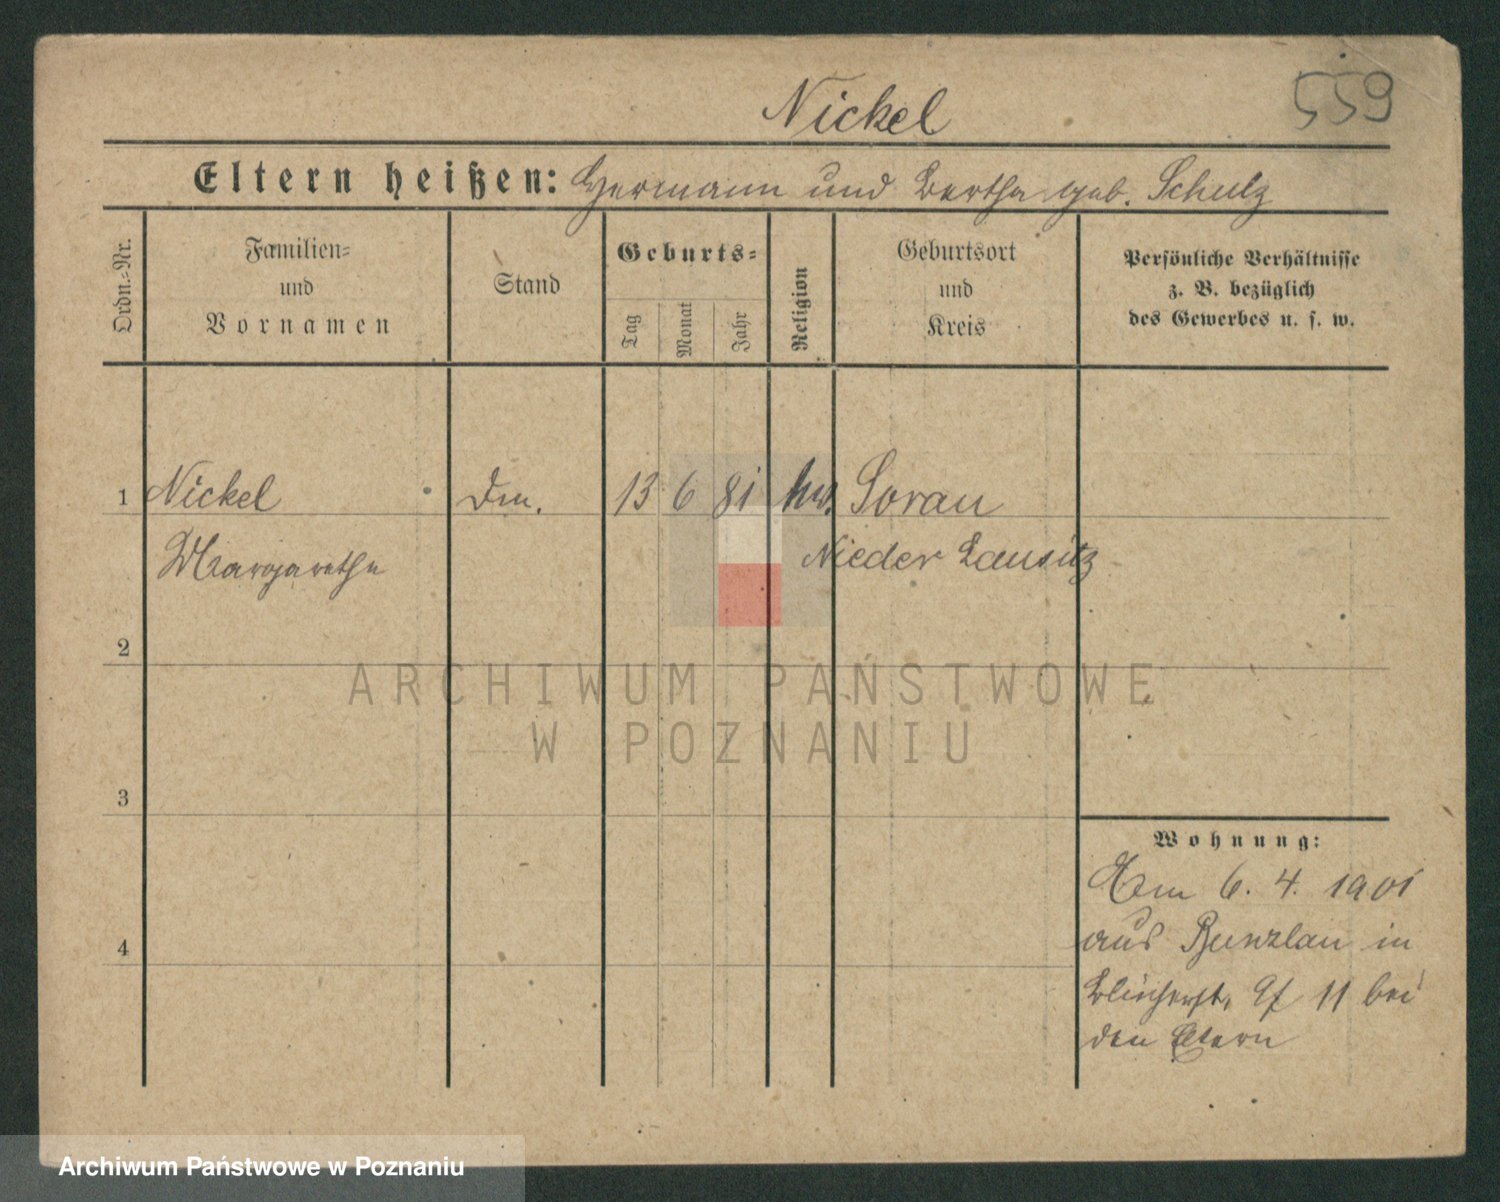 Nickel
559
Eltern heißen: Hermann und Bertha geb. Schulz
Ordn.=Nr.
Familien=
und
Vornamen
Stand
Geburts=
Tag
Monat
Jahr
Religion
Geburtsort
und
Kreis
Persönliche Verhältnisse
z. B. bezüglich
des Gewerbes u. s. w.
1 Nickel 13 6 81 Sorau
Margarethe Nieder Lausitz
2
ARCHIWUM PAŃSTWOWE
W POZNANIU
3
Wohnung:
Am 6. 4. 1901
aus Bunzlau in
4
Blücherst. 9f 11 bei
den Eltern
Archiwum Państwowe w Poznaniu